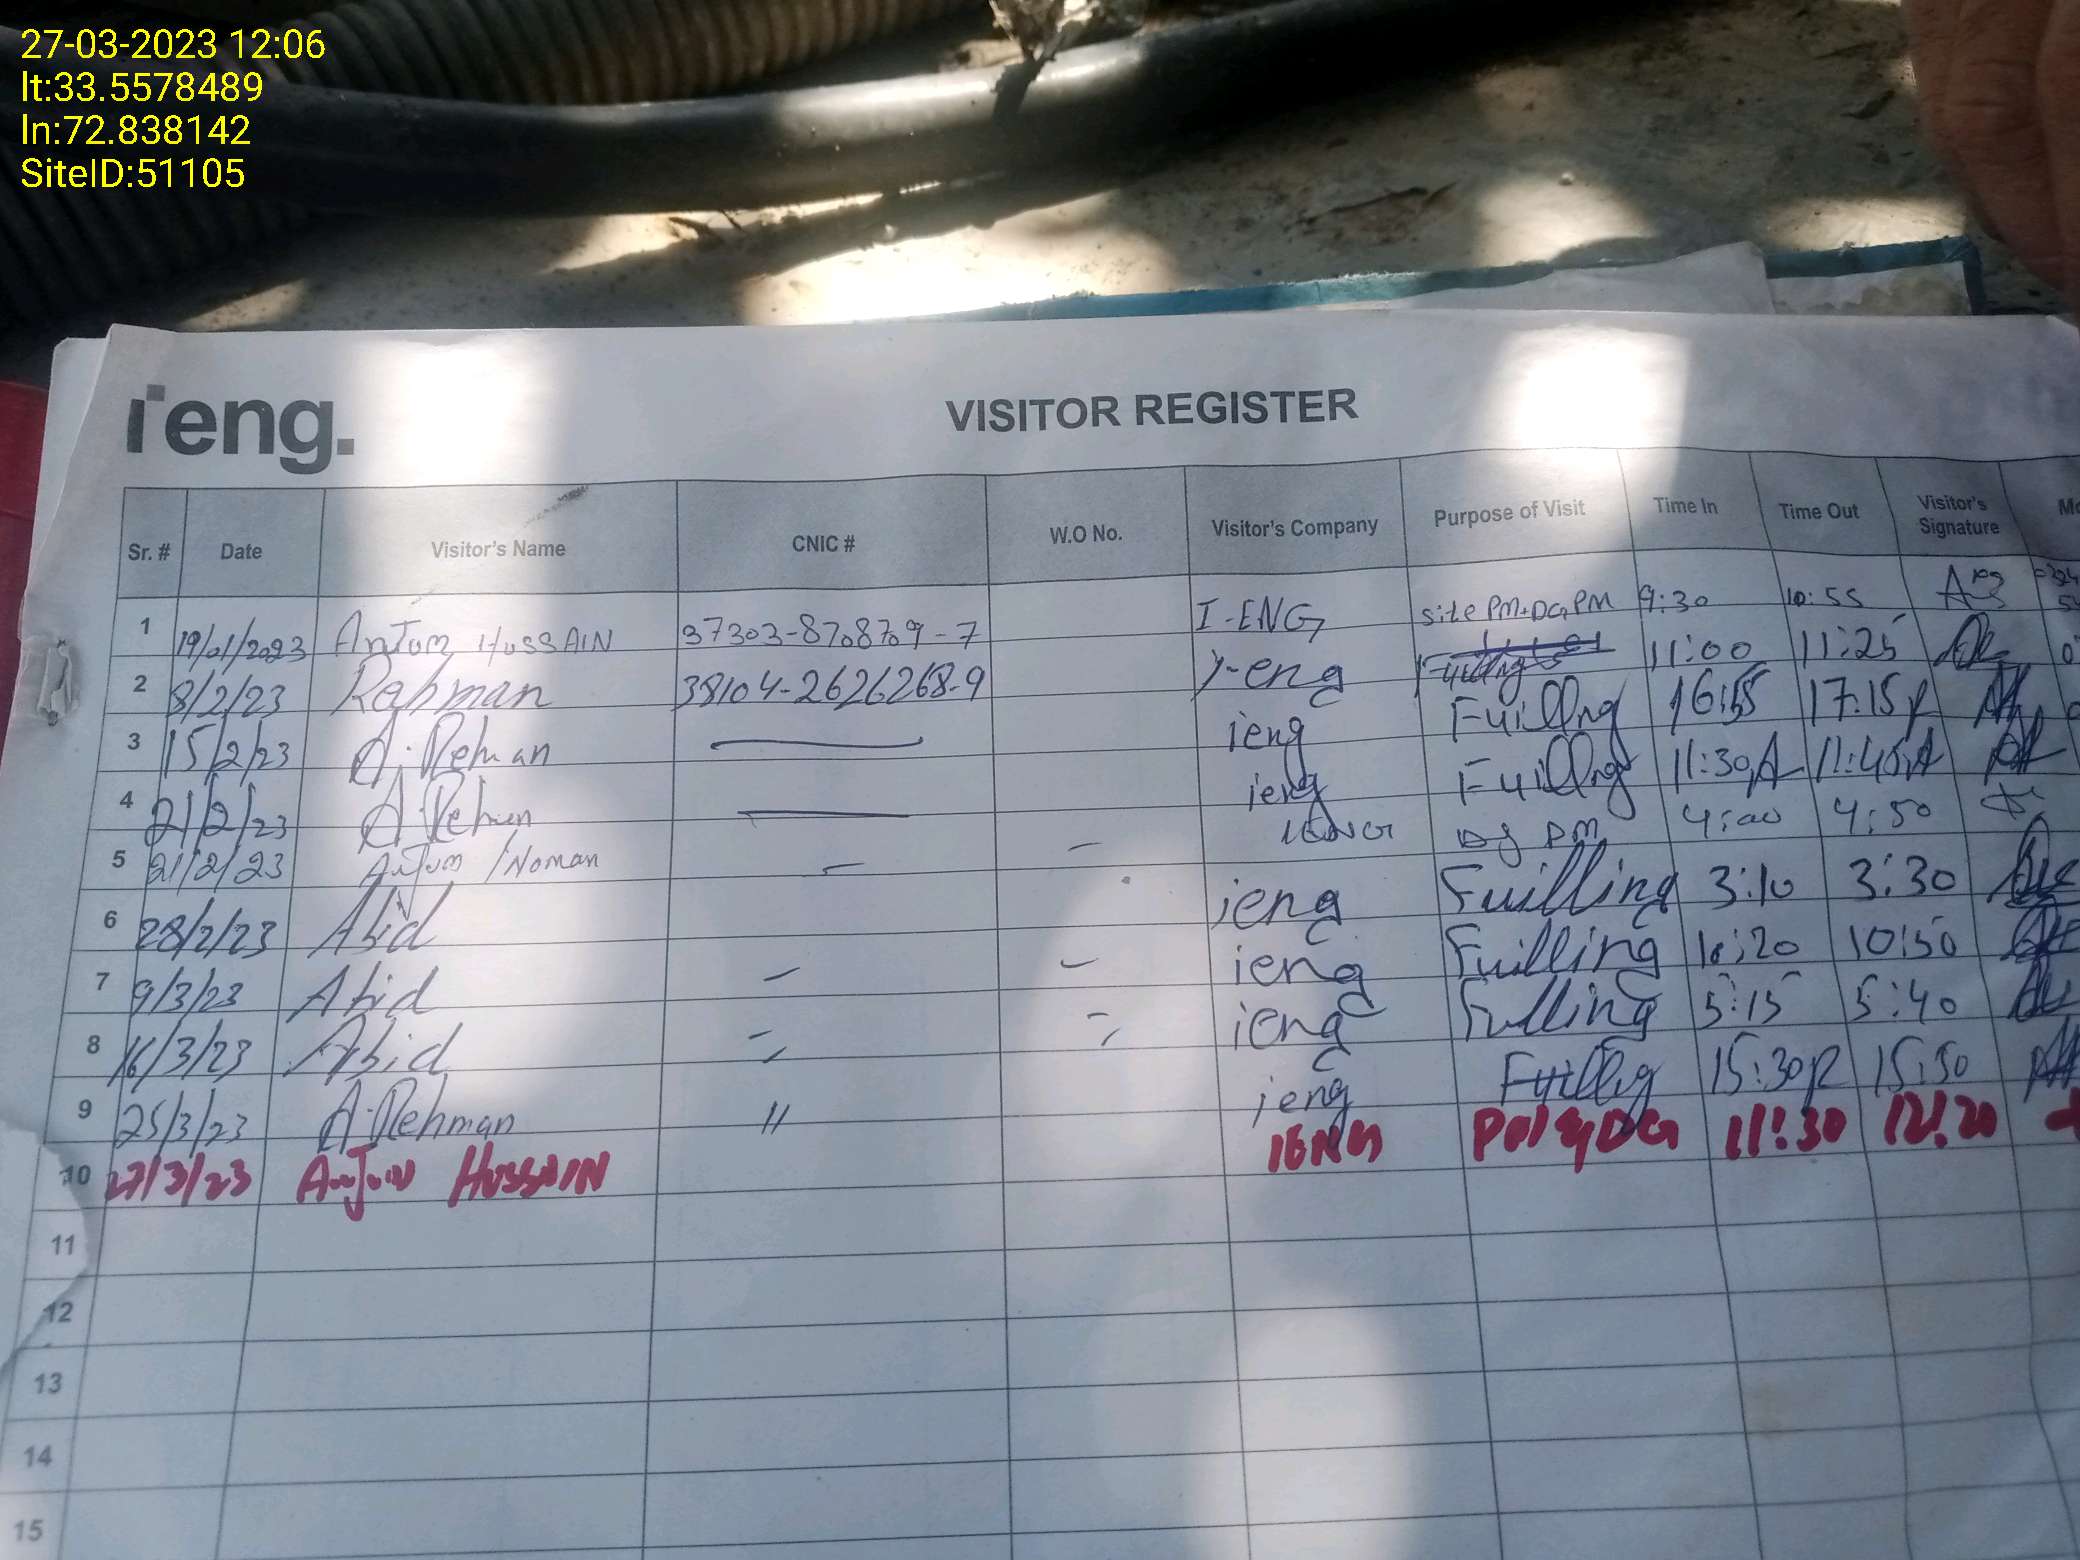 27-03-2023 12:06
lt:33.5578489
ln:72.838142
SiteID:51105
ieng.
VISITOR REGISTER
Sr. # Date Visitor's Name CNIC # W.O No. Visitor's Company Purpose of Visit Time In Time Out Visitor's Signature
1 19/01/2023 Anjum HUSSAIN 37303-8708709-7 I-ENG Site PM+DG PM 9:30 10:55
2 8/2/23 Rahman 38104-2626268-9 I-eng Fuillng 11:00 11:25
3 15/2/23 A.Rehman ieng Fuillng 17:15
4 21/2/23 A.Rehman ieng Fuillng 11:30 A 11:45 A
5 21/2/23 Anjum /Noman - - IENG DG PM 4:00 4:50
6 28/2/23 Abid ieng Fuilling 3:10 3:30
7 9/3/23 Abid - - ieng Fuilling 10:20 10:50
8 16/3/23 Abid ieng Fulling 5:15 5:40
9 25/3/23 A.Rehman " ieng Fuillig 15:30 15:50
10 27/3/23 Anjum HUSSAIN IENG 11:30 12:20
11
12
13
14
15